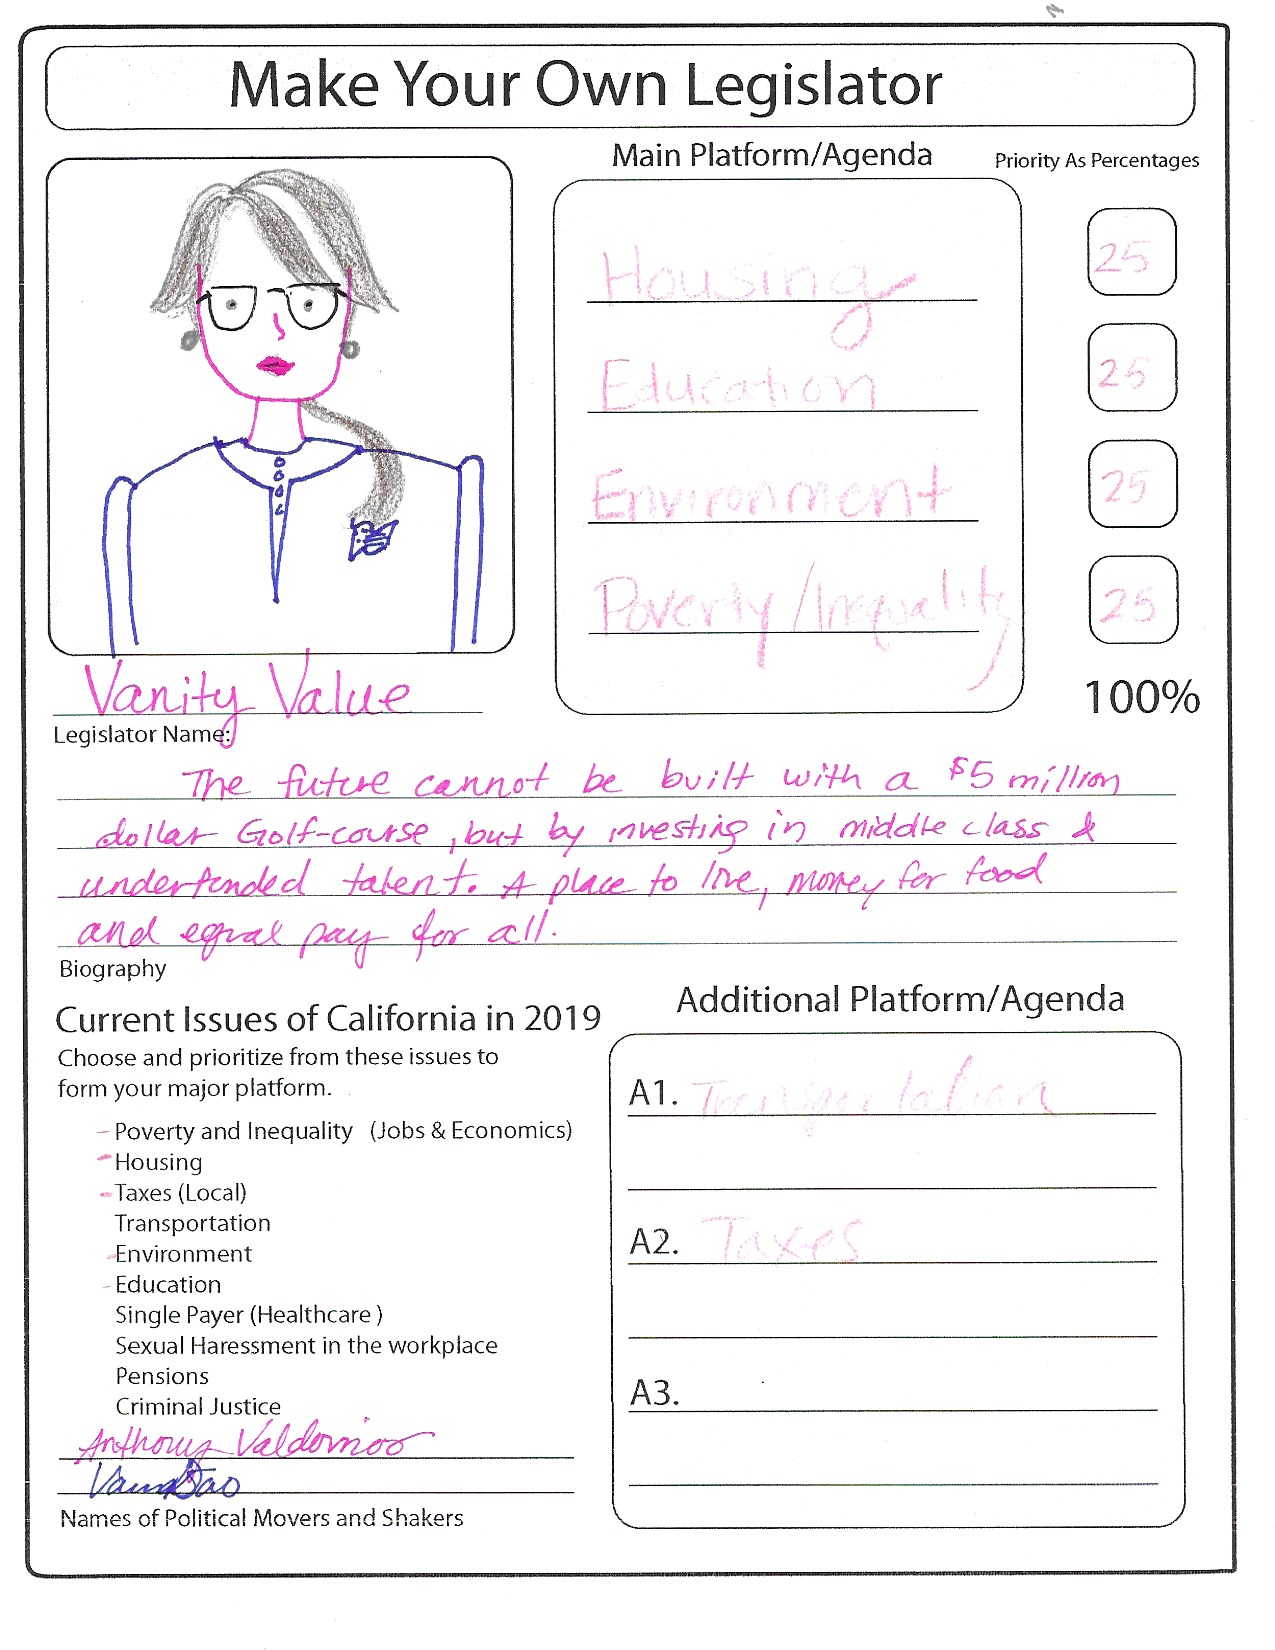 Make Your Own Legislator
Main Platform/Agenda
Priority As Percentages
Housing
25
Education
25
Environment
25
Poverty/Inequality
25
100%
Vanity Value
Legislator Name:
The future cannot be built with a $5 million
dollar Golf-course, but by investing in middle class &
underfunded talent. A place to live, money for food
and equal pay for all.
Biography
Current Issues of California in 2019
Choose and prioritize from these issues to
form your major platform.
- Poverty and Inequality (Jobs & Economics)
- Housing
- Taxes (Local)
Transportation
- Environment
- Education
Single Payer (Healthcare )
Sexual Haressment in the workplace
Pensions
Criminal Justice
Anthony
Names of Political Movers and Shakers
Additional Platform/Agenda
A1. Transportation
A2. Taxes
A3.